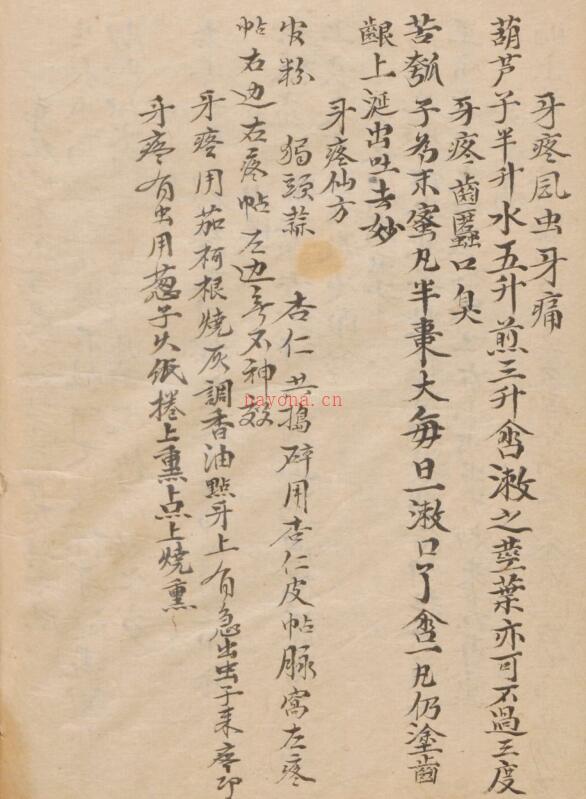 牙疼風虫牙痛
葫芦子半升水五升煎三升含漱之莖葉亦可不過三度
牙疼齒䘌口臭
苦瓠子為末蜜凡半棗大每日一漱口了含一凡仍塗齒
齦上涎出吐去妙
牙疼仙方
官粉 獨頭蒜 杏仁 共搗碎用杏仁皮帖脉窩左疼
帖右边右疼帖左边無不神效
牙疼用茄柯根燒灰調香油點牙上有急出虫子来疼即
牙疼有虫用葱子火紙捲上熏点上燒熏
nayona.cn